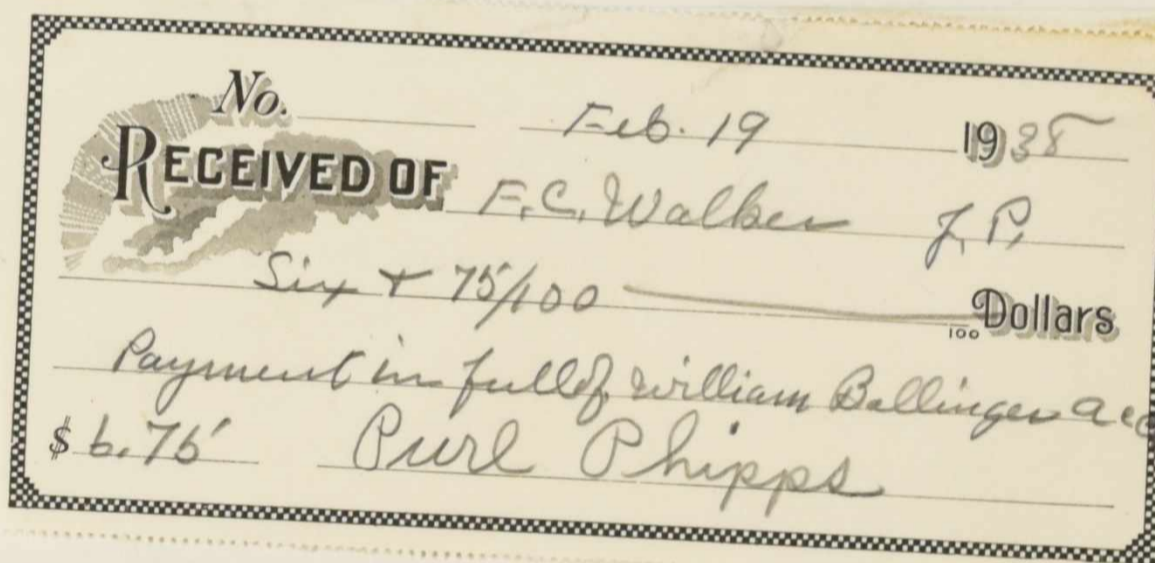 No. Feb. 19 1938
RECEIVED OF F.C. Walker J.P.
Six + 75/100 100 Dollars
Payment in full of William Ballinger acc
$ 6.75 Purl Phipps